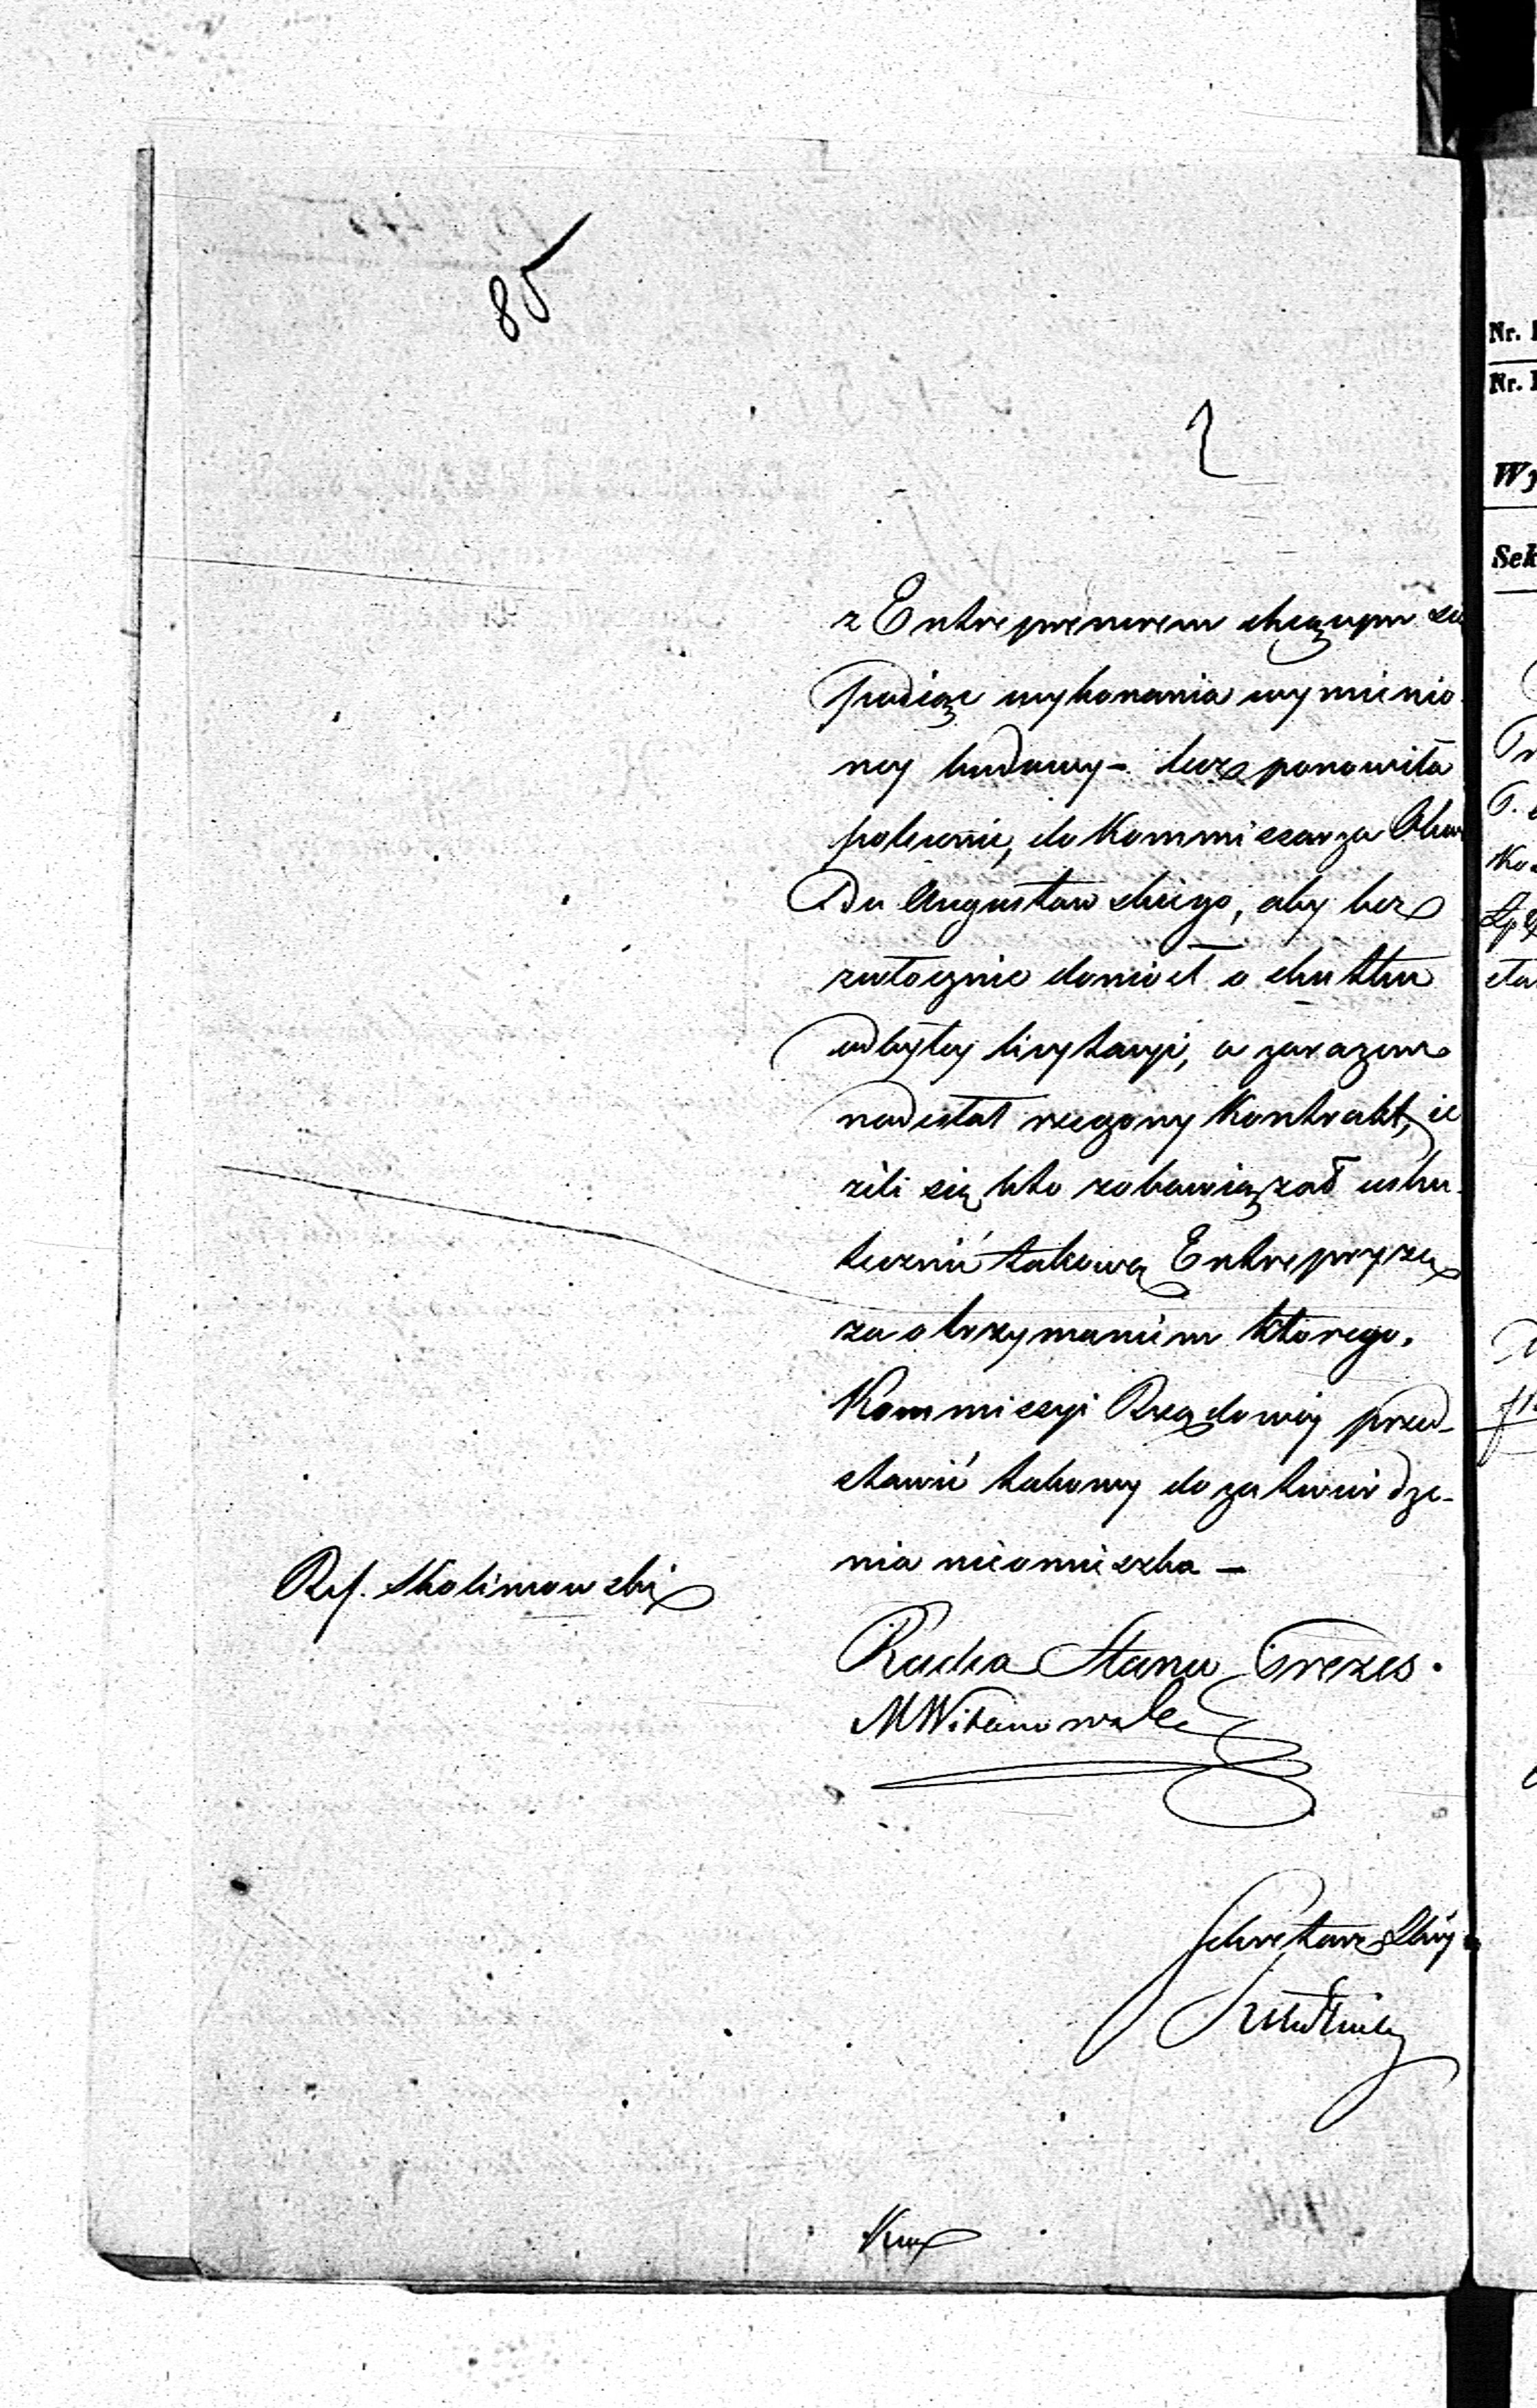 85
2
z Entreprenerem chcącym się
podiąć wykonania wymienio-
ney budowy – lecz ponowiła
polecenie, do Kommissarza Obwo
du Augustowskiego, aby bez
zwłocznie doniósł o skutku
odbytey licytacyi, a zarazem
nadesłał rzeczony Kontrakt, ie
żeli się kto zobowiązał usku-
tecznić takową Entrepryzę
za otrzymaniem którego,
Kommissyi Rządowéy przed-
stawić takowy do zatwierdze-
nia nieomieszka –
Ref. Skolimowski
Radca Stanu Prezes.
Sekretarz
Nr.
Nr.
Wy
Sek